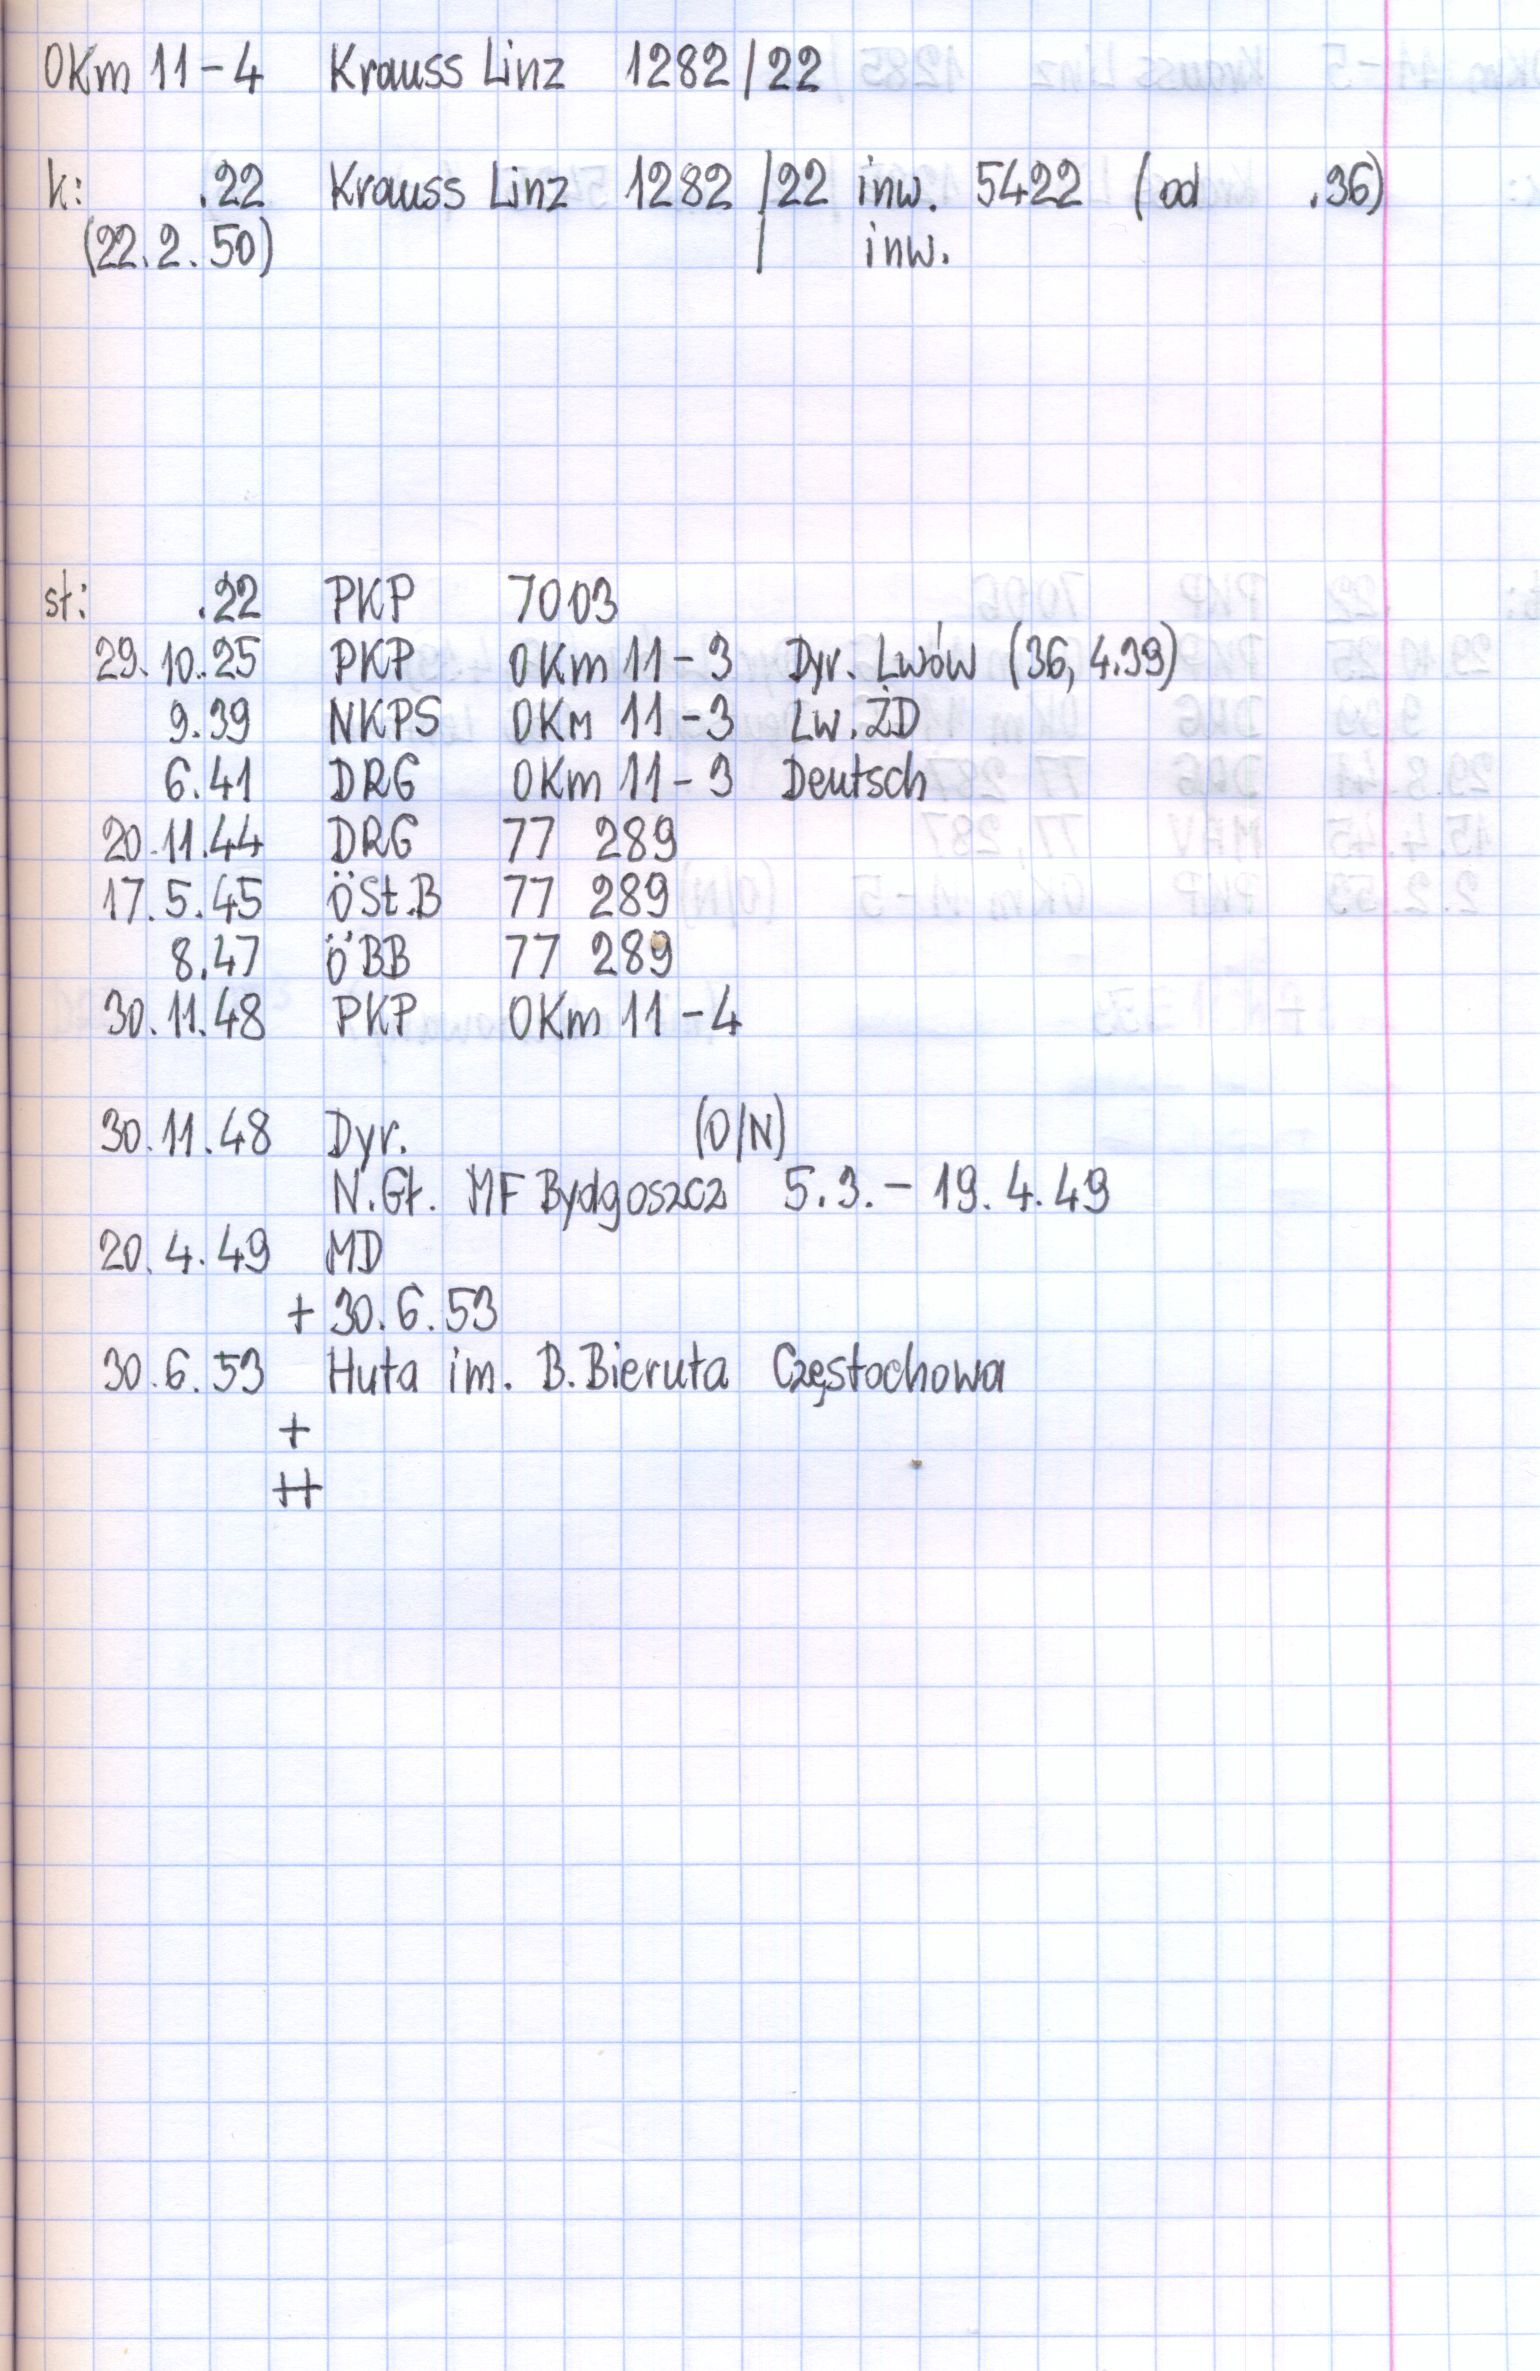 OKm 11-4 Krauss Linz 1282/22
k: .22 Krauss Linz 1282/22 inw. 5422 (od .36)
(22.2.50) / inw.
st: .22 PKP 7003
29.10.25 PKP OKm 11-3 Dyr. Lwów (36, 4.39)
9.39 NKPS OKм 11-3 Lw. ŻD
6.41 DRG OKm 11-3 Deutsch
20.11.44 DRG 77 289
17.5.45 ÖSt.B 77 289
8.47 ÖBB 77 289
30.11.48 PKP OKm 11-4
30.11.48 Dyr. (O/N)
N.Gł. MF Bydgoszcz 5.3.- 19.4.49
20.4.49 MD
+ 30.6.53
30.6.53 Huta im. B.Bieruta Częstochowa
+
++